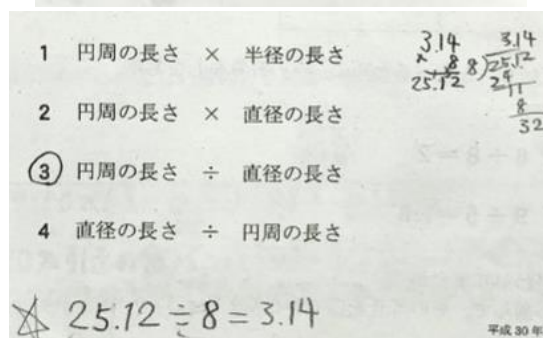 1 円周の長さ × 半径の長さ
2 円周の長さ × 直径の長さ
③ 円周の長さ ÷ 直径の長さ
4 直径の長さ ÷ 円周の長さ
3.14
× 8
25.12
3.14
8)25.12
24
11
8
32
☆ 25.12÷8=3.14
平成30年